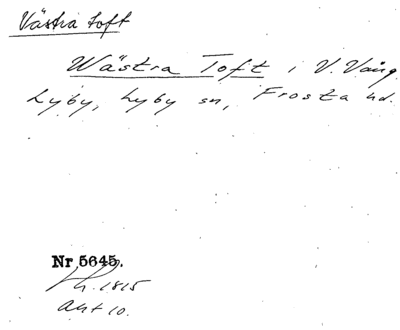 Västra toft
Wästra Toft i V. Vång.
Lyby, Lyby sn, Frosta hd.
Nr 5645.
1815
Akt 10.